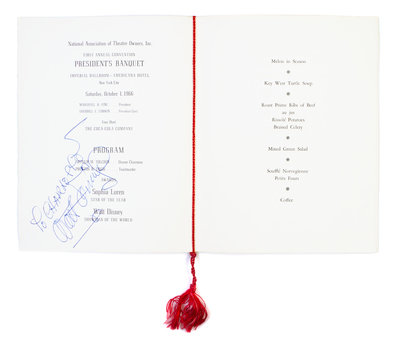 National Association of Theatre Owners, Inc.
FIRST ANNUAL CONVENTION
PRESIDENT'S BANQUET
IMPERIAL BALLROOM - AMERICANA HOTEL
New York City
Saturday, October 1, 1966
MARSHALL H. FINE, President
SHERRILL C. CORWIN President
Your Host
THE COCA COLA COMPANY
PROGRAM
General Chairman
Toastmaster
Sophia Loren
STAR OF THE YEAR
Walt Disney
SHOWMAN OF THE WORLD
TO
Walt Disney
Melon in Season
Key West Turtle Soup
Roast Prime Ribs of Beef
au jus
Rissolé Potatoes
Braised Celery
Mixed Green Salad
Soufflé Norvegienne
Petits Fours
Coffee